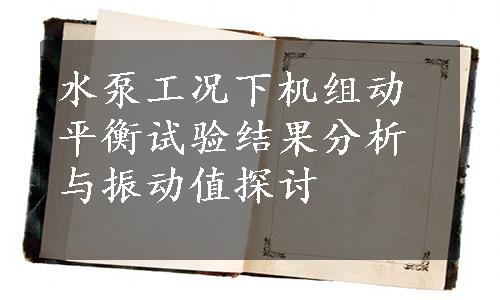 水泵工况下机组动
平衡试验结果分析
与振动值探讨